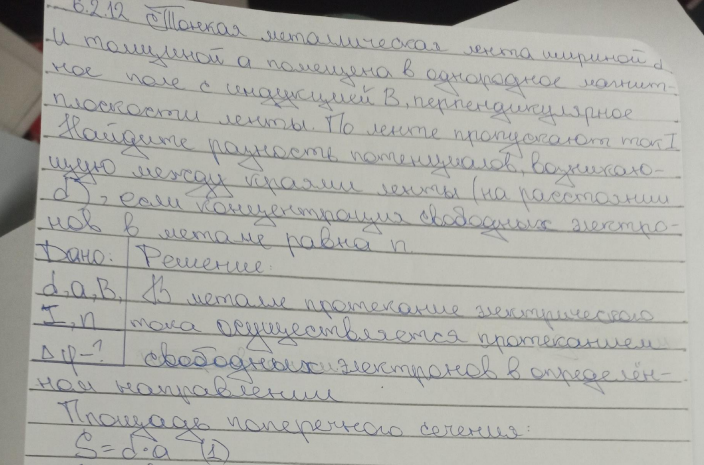 6.2.12 Тонкая металлическая лента шириной d
и толщиной a помещена в однородное магнит-
ное поле с индукцией B, перпендикулярное
плоскости ленты. По ленте пропускают ток I
Найдите разность потенциалов, возникаю-
щую между краями ленты (на расстоянии
d), если концентрация свободных электро-
нов в метале равна n.
Дано: Решение:
d, a, B, В метале протекание электрического
I, n тока осуществляется протеканием
Δφ-? свободных электронов в определён-
ном направлении
Площадь поперечного сечения:
S = d·a (1)